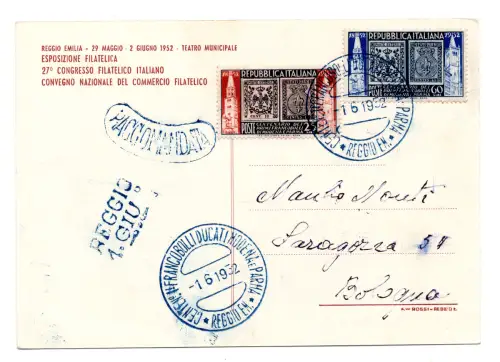 REGGIO EMILIA - 29 MAGGIO - 2 GIUGNO 1952 - TEATRO MUNICIPALE
ESPOSIZIONE FILATELICA
27° CONGRESSO FILATELICO ITALIANO
CONVEGNO NAZIONALE DEL COMMERCIO FILATELICO
REPUBBLICA ITALIANA
1852 1952
POSTE
60
REPUBBLICA ITALIANA
CENTENARIO DEI PRIMI FRANCOBOLLI DI MODENA E PARMA
POSTE
25
-1 6 1952
REGGIO EM.
RACCOMANDATA
REGGIO
1. GIU
CENTEN° FRANCOBOLLI DUCATI MODENA E PARMA
-1 6 1952
REGGIO EM.
Saragozza 51
Bologna